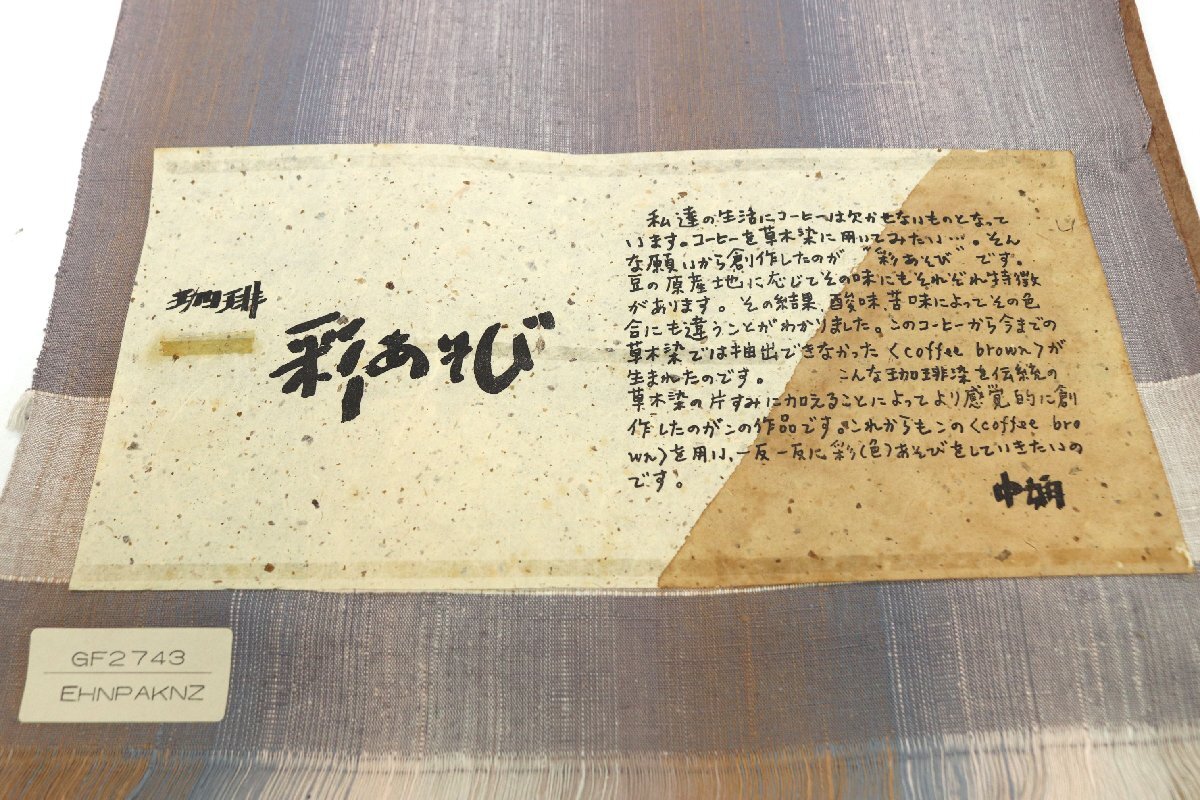 珈琲
彩あそび
私達の生活にコーヒーは欠かせないものとなって
います。コーヒーを草木染に用いてみたい…。そん
な願いから創作したのが “彩あそび” です。
豆の原産地に応じてその味にもそれぞれ特徴
があります。その結果、酸味、苦味によってその色
合にも違うことがわかりました。このコーヒーから今までの
草木染では抽出できなかった〈coffee brown〉が
生まれたのです。 こんな珈琲染を伝統の
草木染の片すみに加えることによってより感覚的に創
作したのがこの作品です。これからもこの〈coffee bro
wn〉を用い、一反一反に彩(色)あそびをしていきたいの
です。
GF2743
EHNPAKNZ